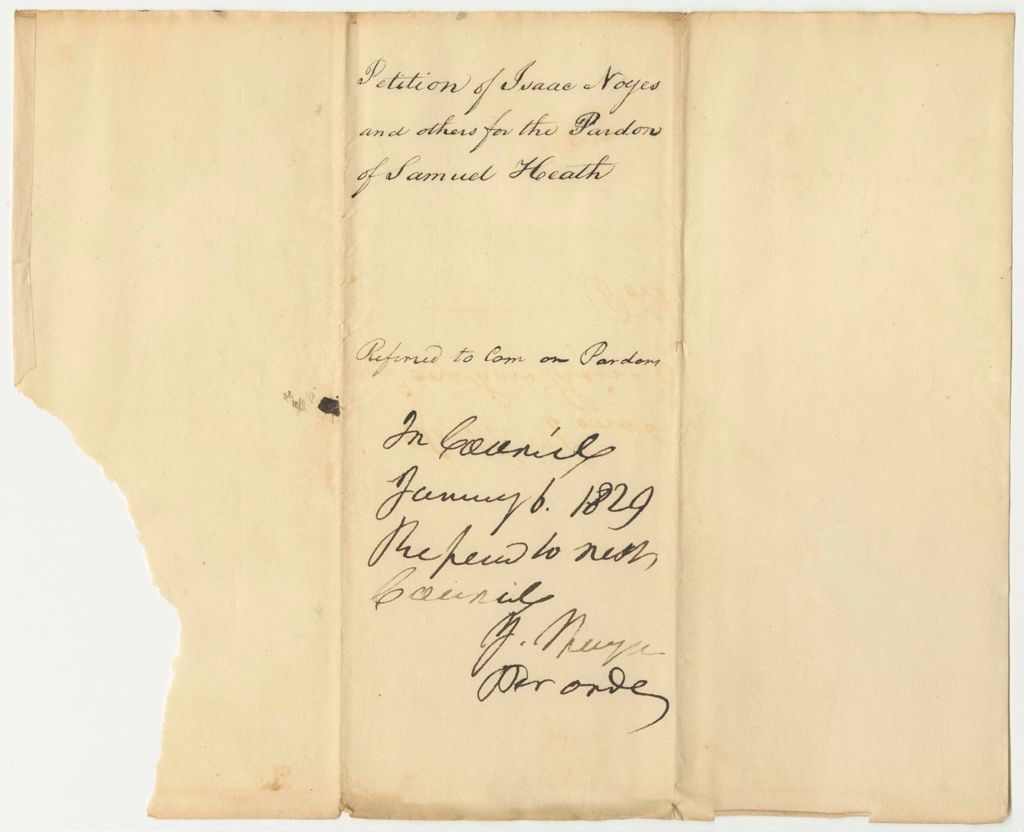 Petition of Isaac Noyes
and others for the Pardon
of Samuel Heath
Referred to Com on Pardons
In Council
January 6. 1829
Referred to next
Council
Per order